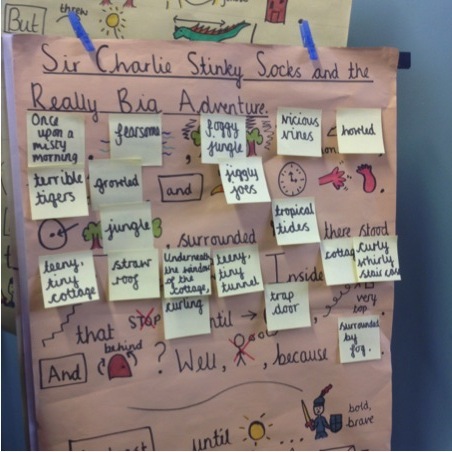 But
threw
Sir Charlie Stinky Socks and the
Really Big Adventure.
Once upon a misty morning
fearsome
foggy jungle
vicious vines
howled
terrible tigers
growled
and
jiggly joes
jungle
tropical tides
, surrounded
there stood
teeny, tiny cottage
straw roof
Underneath the window of the cottage,
curling
teeny, tiny tunnel
Inside
trap door
curly whirly stair case
very top
that
stop
surrounded by fog.
And
behind
? Well,
, because
bold, brave
until
....